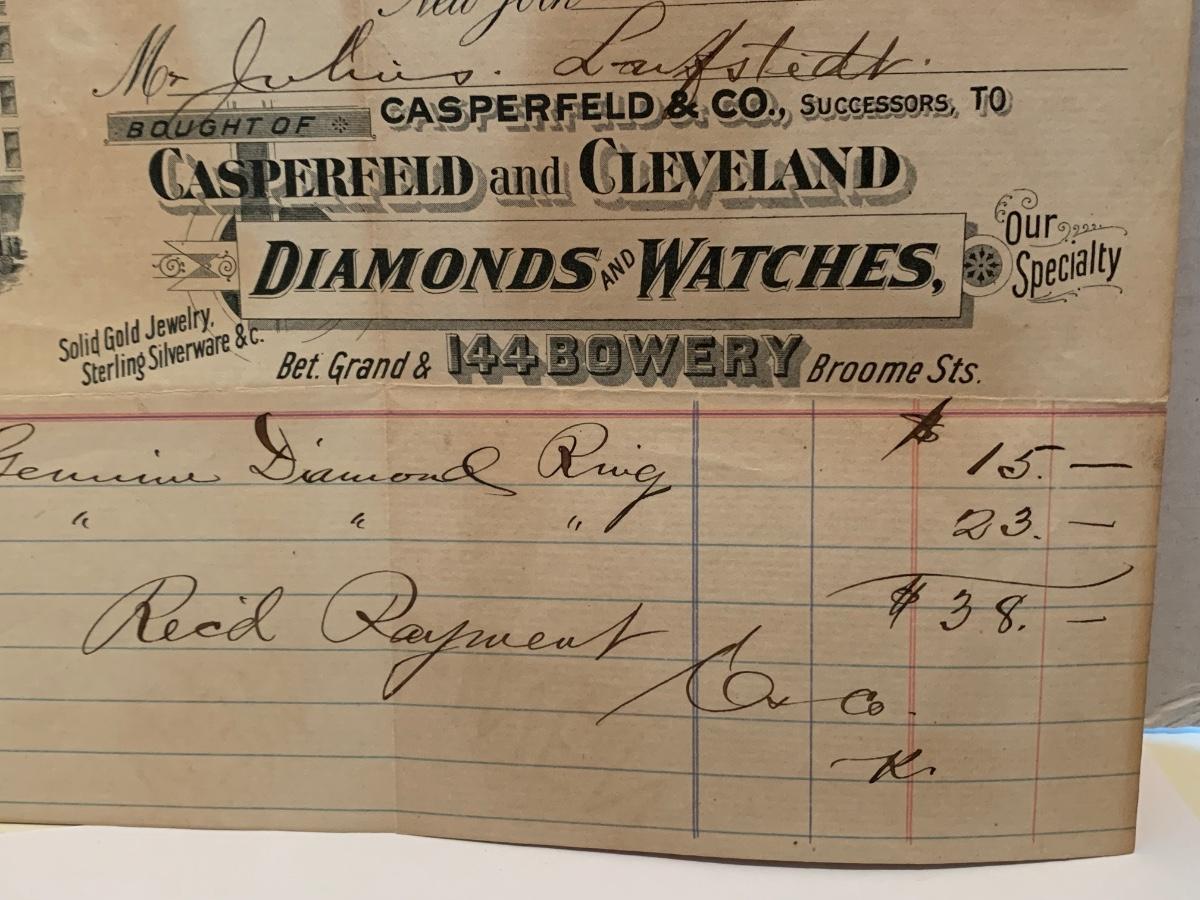 New York
Mr Julius. Laufstedt.
BOUGHT OF CASPERFELD & CO., SUCCESSORS, TO
CASPERFELD and CLEVELAND
DIAMONDS AND WATCHES,
Our Specialty
Solid Gold Jewelry,
Sterling Silverware &c.
Bet. Grand & 144 BOWERY Broome Sts.
Genuine Diamond Ring $ 15. —
" " " 23. —
$ 38. —
Rec'd Payment
C & Co.
K.